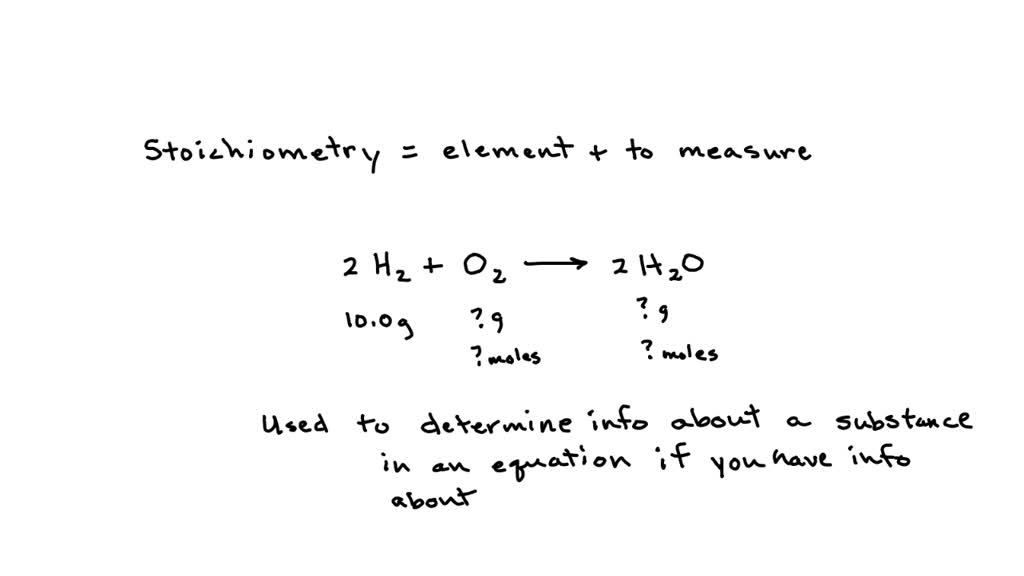 Stoichiometry = element + to measure
2 H₂ + O₂ → 2 H₂O
10.0g ?g ?g
?moles ?moles
Used to determine info about a substance
in an equation if you have info
about